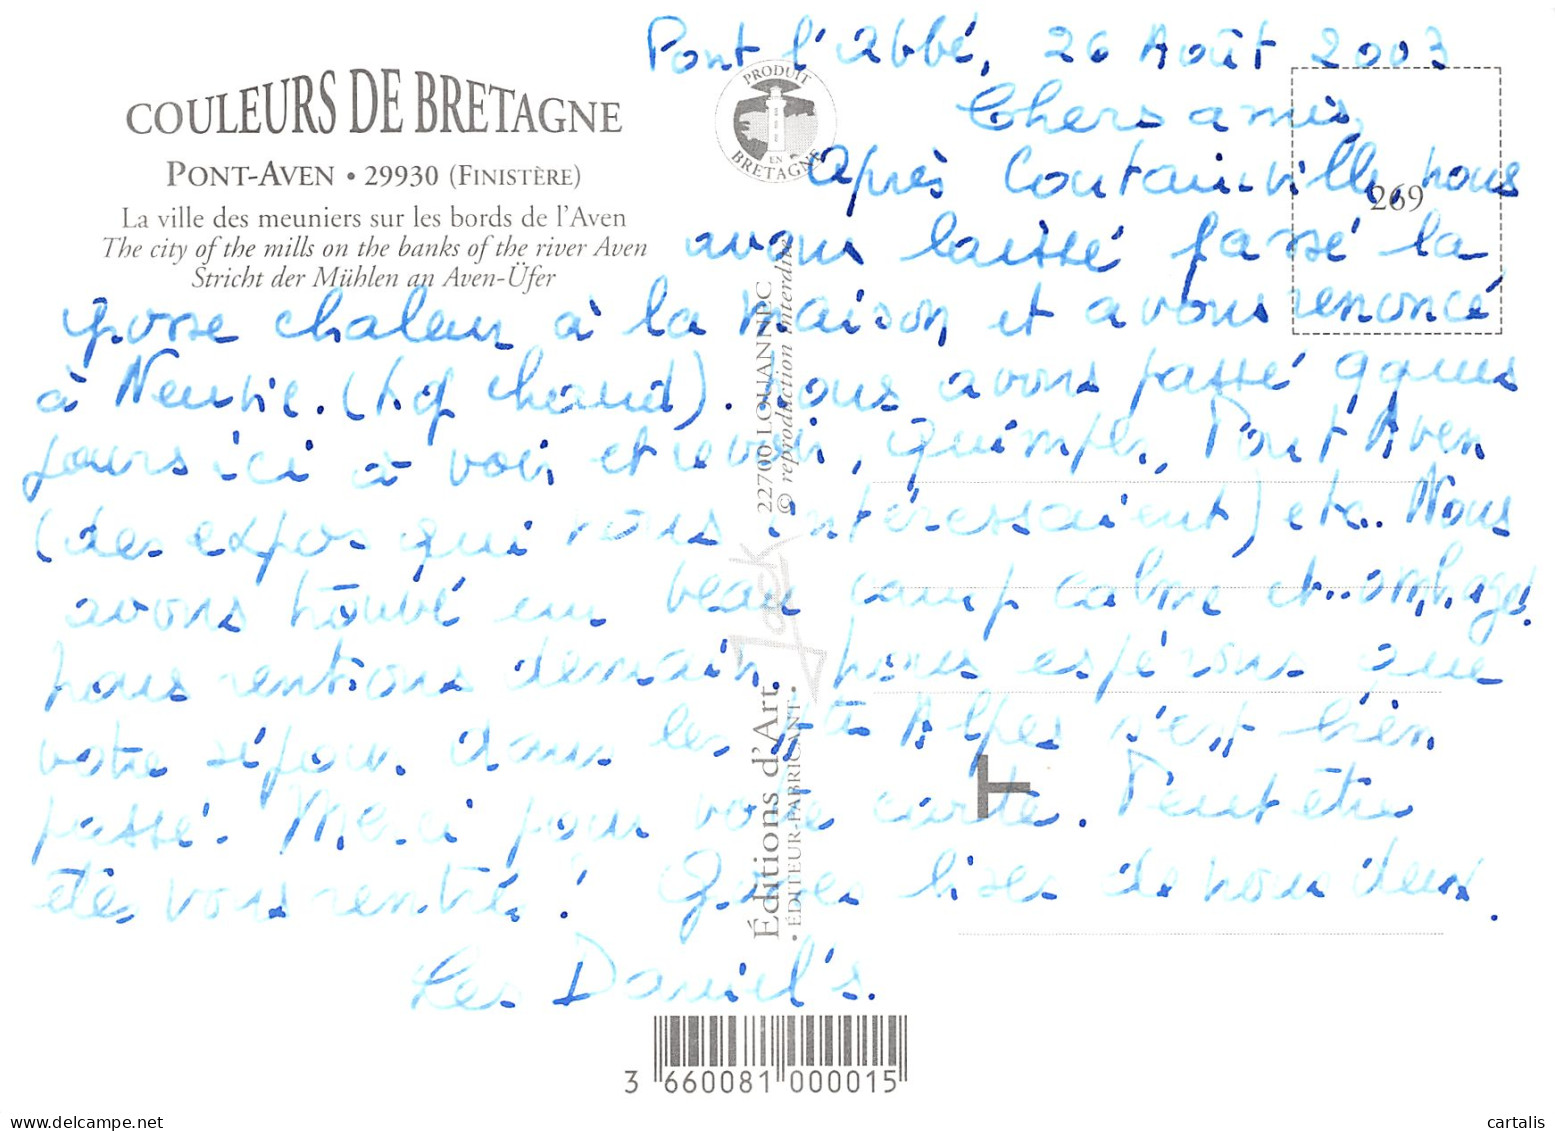 Pont l'abbé, 26 Août 2003
COULEURS DE BRETAGNE
PONT-AVEN • 29930 (FINISTÈRE)
La ville des meuniers sur les bords de l'Aven
The city of the mills on the banks of the river Aven
Stricht der Mühlen an Aven-Üfer
PRODUIT
EN
BRETAGNE
269
Chers amis,
après Coutainville, nous
avons laissé passé la
grosse chaleur à la maison et avons renoncé
à Neuvic. (tp chaud). nous avons passé qques
jours ici à voir et revoir, Quimper, Pont Aven
(des expos qui nous intéressaient) etc.. Nous
avons trouvé un beau camp calme et.. ombragé.
nous rentrons demain. nous espérons que
votre séjour dans les Htes Alpes s'est bien
passé. Merci pour votre carte. Peut être
êtes vous rentrés? Grosses bises de nous deux.
Les Daniel's.
Éditions d'Art Jack
• ÉDITEUR-FABRICANT •
22700 LOUANNEC
© reproduction interdite
T
3 660081 000015
delcampe.net
cartalis